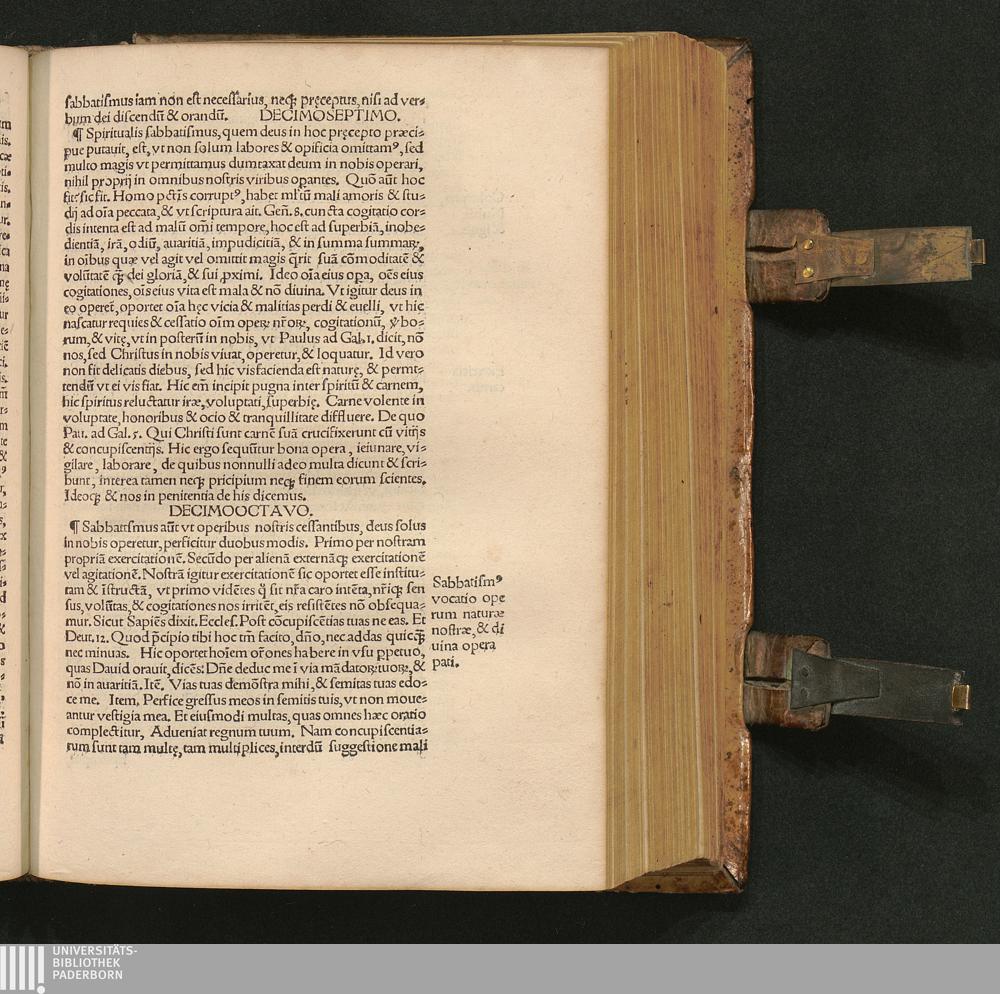 sabbatismus iam non est necessarius, neqꝫ pręceptus, nisi ad ver⸗
bum dei discendū & orandū. DECIMOSEPTIMO.
¶ Spiritualis sabbatismus, quem deus in hoc pręcepto præci⸗
pue putauit, est, vt non solum labores & opificia omittamꝰ, sed
multo magis vt permittamus dumtaxat deum in nobis operari,
nihil proprij in omnibus nostris viribus oꝑantes. Quō aūt hoc
fit? sic fit. Homo pctīs corruptꝰ, habet mltū mali amoris & stu⸗
dij ad oīa peccata, & vt scriptura ait. Geñ. 8. cuncta cogitatio cor⸗
dis intenta est ad malū omi tempore, hoc est ad superbiā, inobe⸗
dientiā, irā, odiū, auaritiā, impudicitiā, & in summa summaꝝ,
in oībus quæ vel agit vel omittit magis q̄rit suā cōmoditatē &
volūtatē q̄ꝫ dei gloriā, & sui ꝓximi. Ideo oīa eius oꝑa, oēs eius
cogitationes, oīs eius vita est mala & nō diuina. Vt igitur deus in
eo operet, oportet oīa hęc vicia & malitias perdi & euelli, vt hic
nascatur requies & cessatio oīm opeꝝ nr̄oꝝ, cogitationū, v̄bo⸗
rum, & vitę, vt in posterū in nobis, vt Paulus ad Gal. 1. dicit, nō
nos, sed Christus in nobis viuat, operetur, & loquatur. Id vero
non fit delicatis diebus, sed hic vis facienda est naturę, & permt⸗
tendū vt ei vis fiat. Hic em̄ incipit pugna inter spiritū & carnem,
hic spiritus reluctatur iræ, voluptati, superbię. Carne volente in
voluptate, honoribus & ocio & tranquillitate diffluere. De quo
Pau. ad Gal. 5. Qui Christi sunt carnē suā crucifixerunt cū vitijs
& concupiscentijs. Hic ergo sequūtur bona opera, ieiunare, vi⸗
gilare, laborare, de quibus nonnulli adeo multa dicunt & scri⸗
bunt, interea tamen neqꝫ pricipium neqꝫ finem eorum scientes.
Ideoqꝫ & nos in penitentia de his dicemus.
DECIMOOCTAVO.
¶ Sabbatismus aūt vt operibus nostris cessantibus, deus solus
in nobis operetur, perficitur duobus modis. Primo per nostram
propriā exercitationē. Secūdo per alienā externāqꝫ exercitationē
vel agitationē. Nostrā igitur exercitationē sic oportet esse institu⸗
tam & īstructā, vt primo vidētes q̇ sit nr̄a caro intēta, nr̄iqꝫ sen
sus, volūtas, & cogitationes nos irritēt, eis resistētes nō obsequa⸗
mur. Sicut Sapiēs dixit. Eccles. Post cōcupiscētias tuas ne eas. Et
Deut. 12. Quod p̄cipio tibi hoc tm̄ facito, dño, nec addas quicq̄ꝫ
nec minuas. Hic oportet hoīem or̄ones habere in vsu ꝑpetuo,
quas Dauid orauit, dicēs: Dñe deduc me ī via mādatoꝝ tuoꝝ, &
nō in auaritiā. Itē. Vias tuas demōstra mihi, & semitas tuas edo⸗
ce me. Item. Perfice gressus meos in semitis tuis, vt non moue⸗
antur vestigia mea. Et eiusmodi multas, quas omnes hæc oratio
complectitur, Adueniat regnum tuum. Nam concupiscentia⸗
rum sunt tam multę, tam multiplices, interdū suggestione mali
Sabbatismꝰ
vocatio ope
rum naturæ
nostræ, & di
uina opera
pati.
UNIVERSITÄTS-
BIBLIOTHEK
PADERBORN